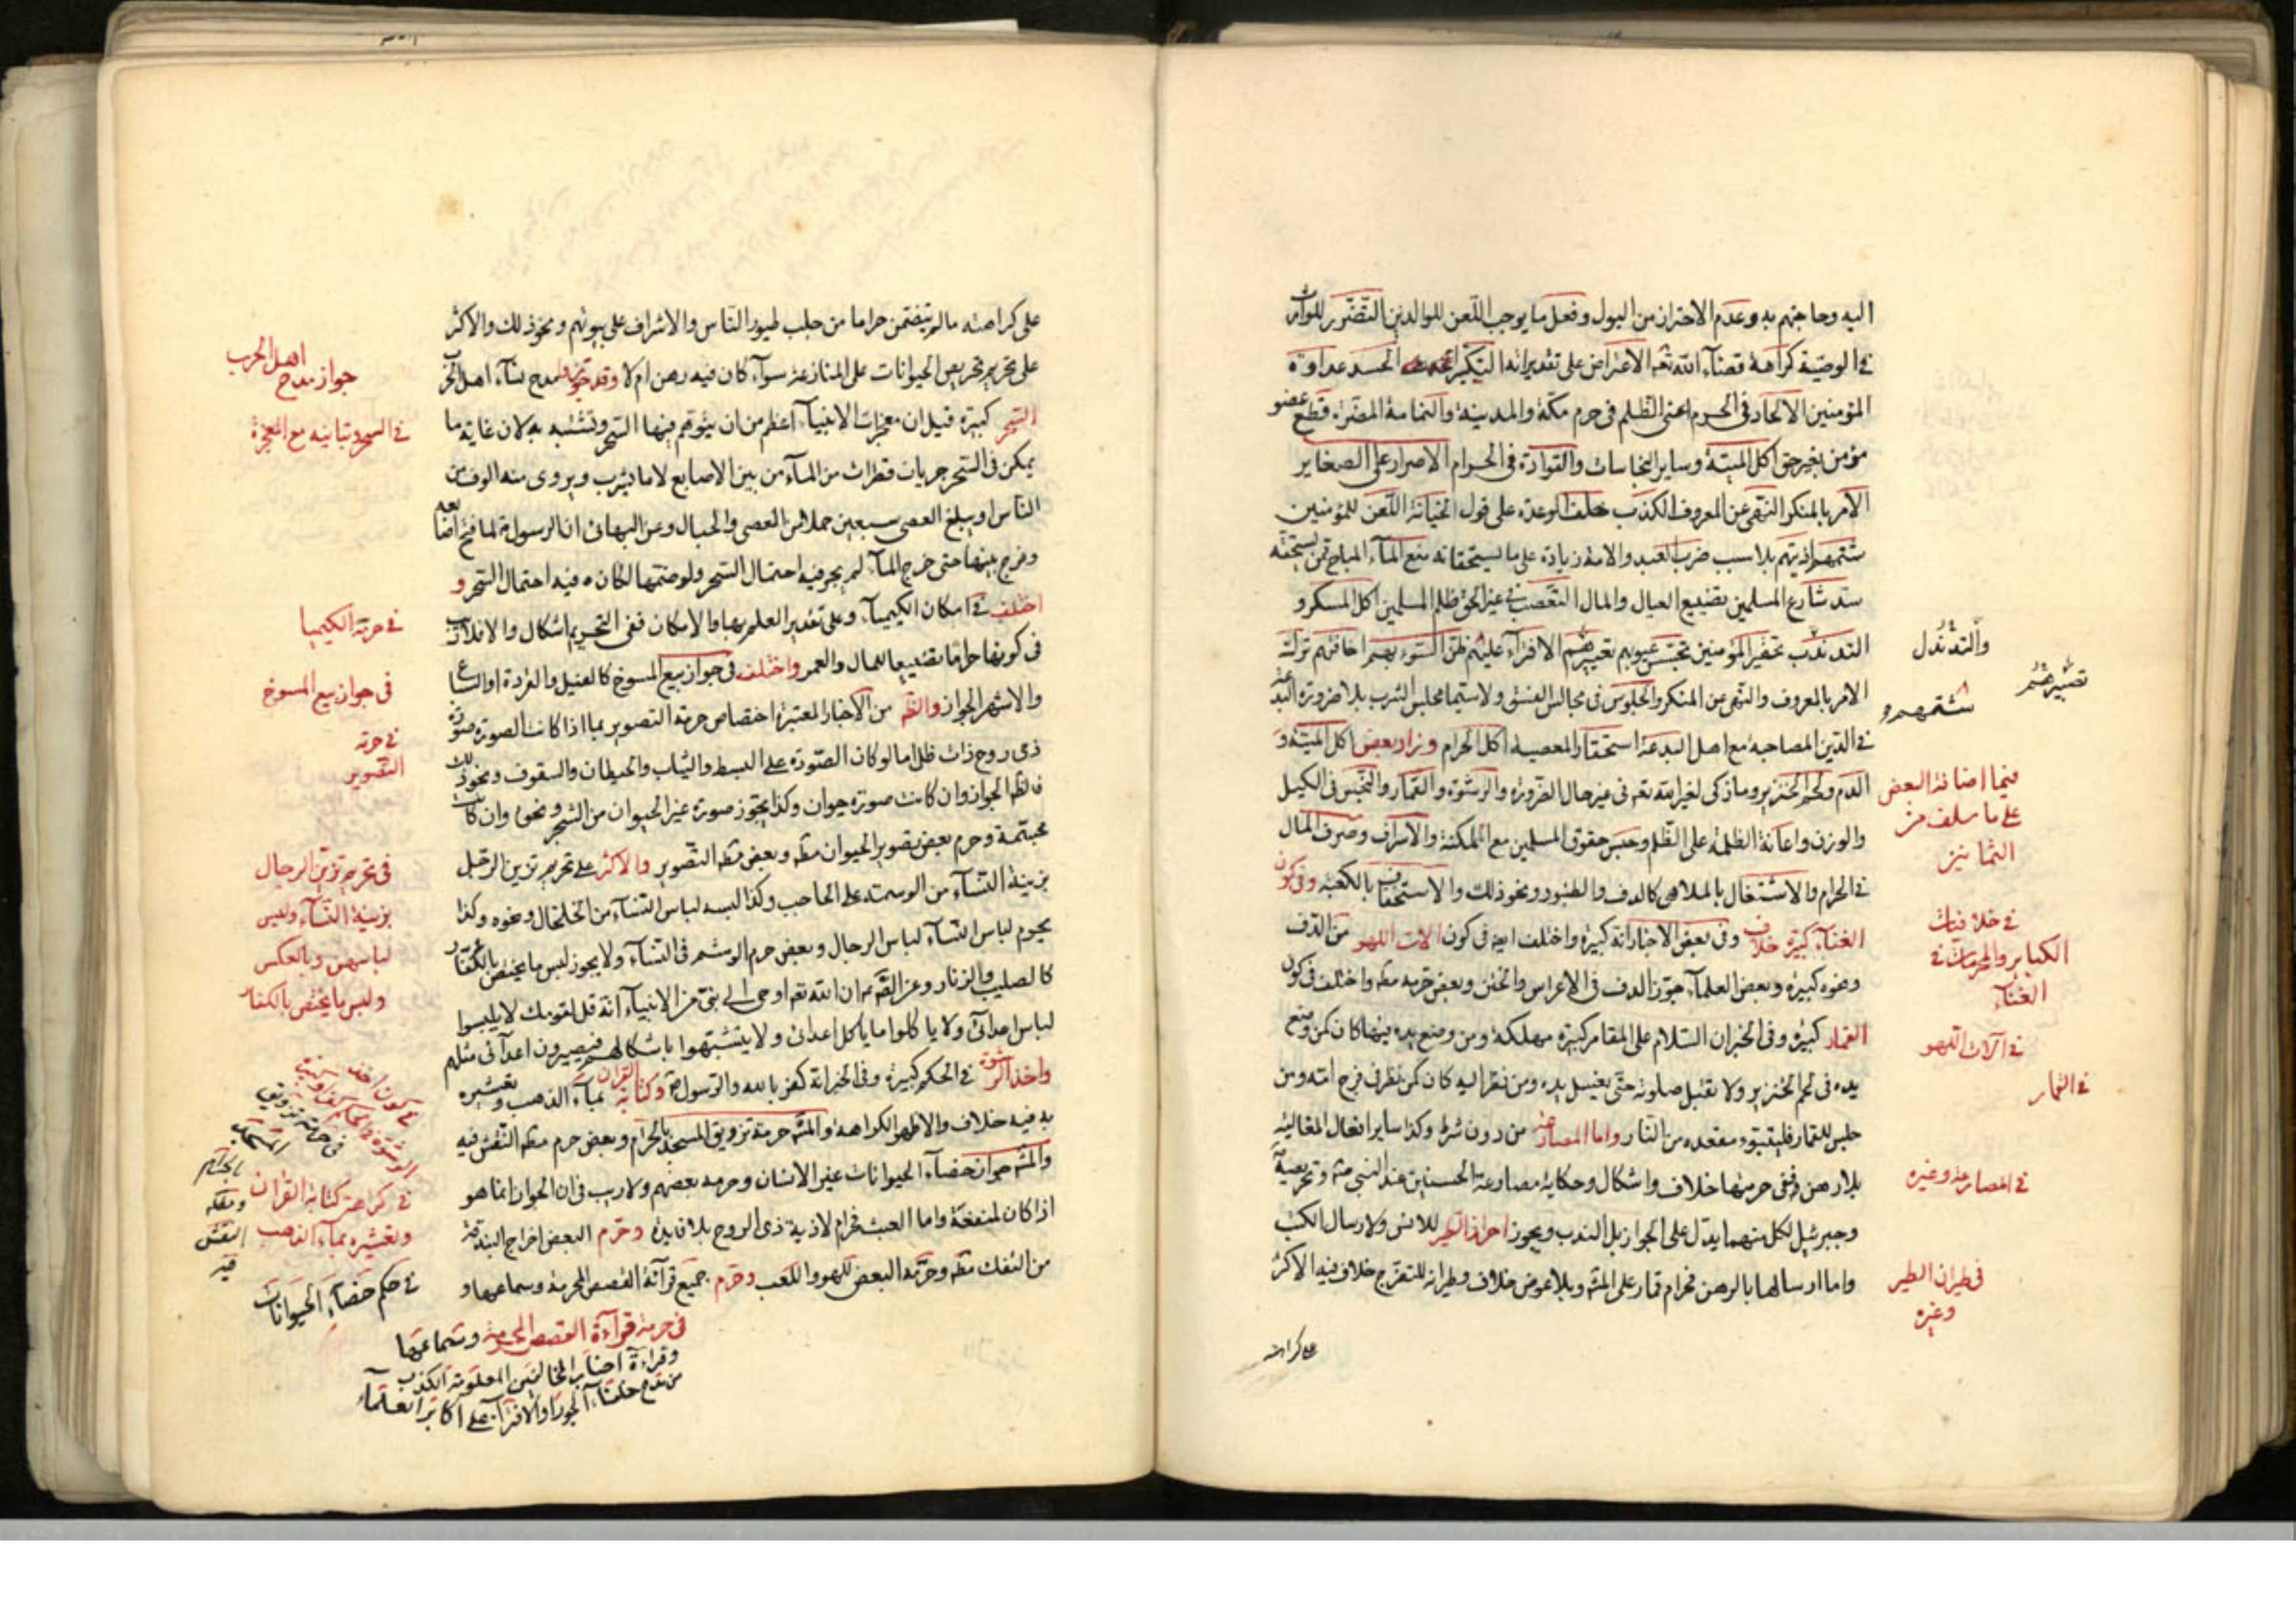 اليه وحاجتهم به وعدم الاحتراز من البول وفعل ما يوجب اللعن للوالدين التضرر للوارث
في الوصية كراهة قضاء الله تعه الاعتراض على تقديراته التكبر الحسد عداوة
المؤمنين الالحاد في الحرم اعنى الظلم في حرم مكة والمدينة والنمامة المضرة قطع عضو
مؤمن بغير حق اكل الميتة وساير النجاسات والقوادة في الحرام الاصرار على الصغاير
الامر بالمنكر النهى عن المعروف الكذب خلف الوعد على قول الخيانة اللعن للمؤمنين
شتمهم اذيتهم بلا سبب ضرب العبد والامة زيادة على ما يستحقانه منع الماء المباح عن يستحقه
سد شارع المسلمين تضييع العيال والمال التعصب في غير الحق ظلم المسلمين اكل المسكر و
التدندب تحقير المؤمنين تجسس عيوبهم تعييرهم الافتراء عليهم ظن السوء بهم اخافتهم ترك
الامر بالمعروف والنهى عن المنكر والجلوس في مجالس الفسق ولا سيما مجلس الشرب بلا ضرورة البدعة
في الدين المصاحبة مع اهل البدعة استحقار المعصية اكل الحرام وزاد بعض اكل الميتة و
الدم ولحم الخنزير وما ذكى لغير الله تعه في غير حال الضرورة والرشوة والقمار والنجس في الكيل
والوزن واعانة الظلمة على الظلم وحبس حقوق المسلمين مع المكنة والاسراف وصرف المال
في الحرام والاشتغال بالملاهى كالدف والطنبور ونحو ذلك والاستخفاف بالكعبة وفي كون
الغناء كبيرة خلاف وفي بعض الاخبار انه كبيرة واختلف ايضا في كون الات اللهو من الدف
ونحوه كبيرة وبعض العلماء جوز الدف في الاعراس والختن وبعض حرمه مطه واختلف في كون
القمار كبيرة وفي الخبر ان السلام على المقامر كبيرة مهلكة ومن وضع يده فيها كان كمن وضع
يده في لحم الخنزير ولا تقبل صلوته حتى يغسل يده ومن نظر اليه كان كمن نظر في فرج امه ومن
جلس للقمار فليتبوء مقعده من النار واما المصارعة من دون شرط وكذا ساير افعال المغالبة
بلا رهن ففى حرمتها خلاف واشكال وحكاية مصارعة الحسنين عند النبي ص وتحريصه
وجبرئيل لكل منهما يدل على الجواز بل الندب ويجوز احراز الطير للانس ولارسال الكتب
واما ارسالها بالرهن فحرام قمار على المشه وبلا عوض خلاف وطيرانه للتفرج خلاف فيه الاكثر
على كراهته
والتدندل
شتمهم و
فيما اضافة البعض
على ما سلف من
الثمانين
في خلافيات
الكباير والمحرمات في
الغناء
في آلات اللهو
في القمار
في المصارعة وغيره
في طيران الطير
وغيره
على كراهته ما لم يتضمن حراما من جلب طيور الناس والاشراف على بيوتهم ونحو ذلك والاكثر
على تحريم تحريص الحيوانات على المنازعة سواء كان فيه رهن ام لا وقد جوزوا مدح نساء اهل الحرب
السحر كبيرة قيل ان معجزات الانبياء اعظم من ان يتوهم فيها السحر وتشبه به لان غاية ما
يمكن في السحر جريان قطرات من الماء من بين الاصابع لا ما يشرب ويروى منه الوف من
الناس او يبلغ العصى سبعين حملا من العصى والحبال وعن البهائى ان الرسول ص لما فتح اصابعه
وفرج بينها حتى خرج الماء لم يجر فيه احتمال السحر ولو ضمها لكان فيه احتمال السحر و
اختلف في امكان الكيمياء وعلى تقدير العلم بها والامكان ففى التحريم اشكال ولا ريب
في كونها حراما تضييعا للمال والعمر واختلف في جواز بيع المسوخ كالفيل والقردة او السباع
والاشهر الجواز والظه من الاخبار المعتبرة اختصاص حرمة التصوير بما اذا كانت الصورة صورة
ذى روح ذات ظل اما لو كان الصورة على البسط والثياب والحيطان والسقوف ونحو ذلك
فالظه الجواز وان كانت صورة حيوان وكذا يجوز صورة غير الحيوان من الشجر ونحوه وان كانت
مجسمة وحرم بعض تصوير الحيوان مطه وبعض مطه التصوير والاكثر على تحريم تزيين الرجل
بزينة النساء من الوسمة على الحاجب وكذا لبسه لباس النساء من الخلخال ونحوه وكذا
يحرم لباس النساء لباس الرجال وبعض حرم الوشم في النساء ولا يجوز لبس ما يختص بالكفار
كالصليب والزنار وعن الفقيه ان الله تعه اوحى الى نبى من الانبياء انه قل لقومك لا يلبسوا
لباس اعدائى ولا ياكلوا ما ياكل اعدائى ولا يتشبهوا باشكالهم فيصيرون اعدائى مثلهم
واخذ الرشوة في الحكم كبيرة وفي الخبر انه كفر بالله والرسول ص وكتابة القران بماء الذهب وتعشيره
به فيه خلاف والاظهر الكراهة والمشه حرمة تزويق المسجد بالحرام وبعض حرم مطه النقش فيه
والمشه جواز خصاء الحيوانات غير الانسان وحرمه بعضهم ولا ريب في ان الجواز انما هو
اذا كان لمنفعة واما العبث فحرام لاذية ذى الروح بلا فايدة وحرم البعض اخراج البندقة
من التفك مطه وحرمه البعض للهو واللعب وحرم جميع قرآئة القصص المحرمة وسماعها و
جواز مدح اهل الحرب
في السحر وتباينه مع المعجزة
في حرمة الكيميا
في جواز بيع المسوخ
في حرمة
التصوير
في تحريم تزين الرجال
بزينة النساء ولبس
لباسهن وبالعكس
ولبس ما يختص بالكفار
في كون اخذ
الرشوة في الحكم
في حرمة تزويق
المسجد
بالحرام
ومطه
النقش
فيه
في كراهة كتابة القران
وتعشيره بماء الذهب
في حكم خصاء الحيوانات
في حرمة قرآءة القصص المحرمة وسماعها
وقراءة اخبار المخالفين المعلومة الكذب
من مدح خلفاء الجور والافتراء على اكابر العلماء